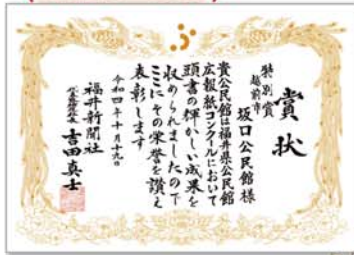 賞状
特別賞
越前市
坂口公民館様
貴公民館は福井県公民館
広報紙コンクールにおいて
頭書の輝かしい成果を
収められましたので
ここにその栄誉を讃え
表彰します
令和四年十月十九日
福井新聞社
吉田真士